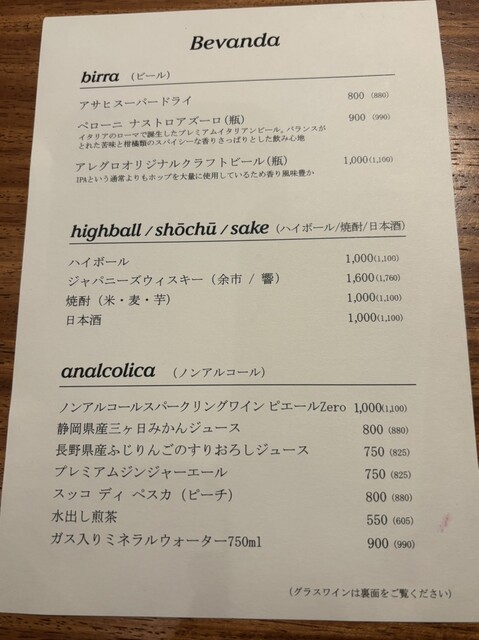 Bevanda
birra (ビール)
アサヒスーパードライ 800 (880)
ペローニ ナストロアズーロ(瓶) 900 (990)
イタリアのローマで誕生したプレミアムイタリアンビール。バランスが
とれた苦味と柑橘類のスパイシーな香りさっぱりとした飲み心地
アレグロオリジナルクラフトビール(瓶) 1,000(1,100)
IPAという通常よりもホップを大量に使用しているため香り風味豊か
highball / shōchū / sake (ハイボール/焼酎/日本酒)
ハイボール 1,000(1,100)
ジャパニーズウィスキー (余市 / 響) 1,600(1,760)
焼酎 (米・麦・芋) 1,000(1,100)
日本酒 1,000(1,100)
analcolica (ノンアルコール)
ノンアルコールスパークリングワイン ピエールZero 1,000(1,100)
静岡県産三ヶ日みかんジュース 800 (880)
長野県産ふじりんごのすりおろしジュース 750 (825)
プレミアムジンジャーエール 750 (825)
スッコ ディ ペスカ (ピーチ) 800 (880)
水出し煎茶 550 (605)
ガス入りミネラルウォーター750ml 900 (990)
(グラスワインは裏面をご覧ください)